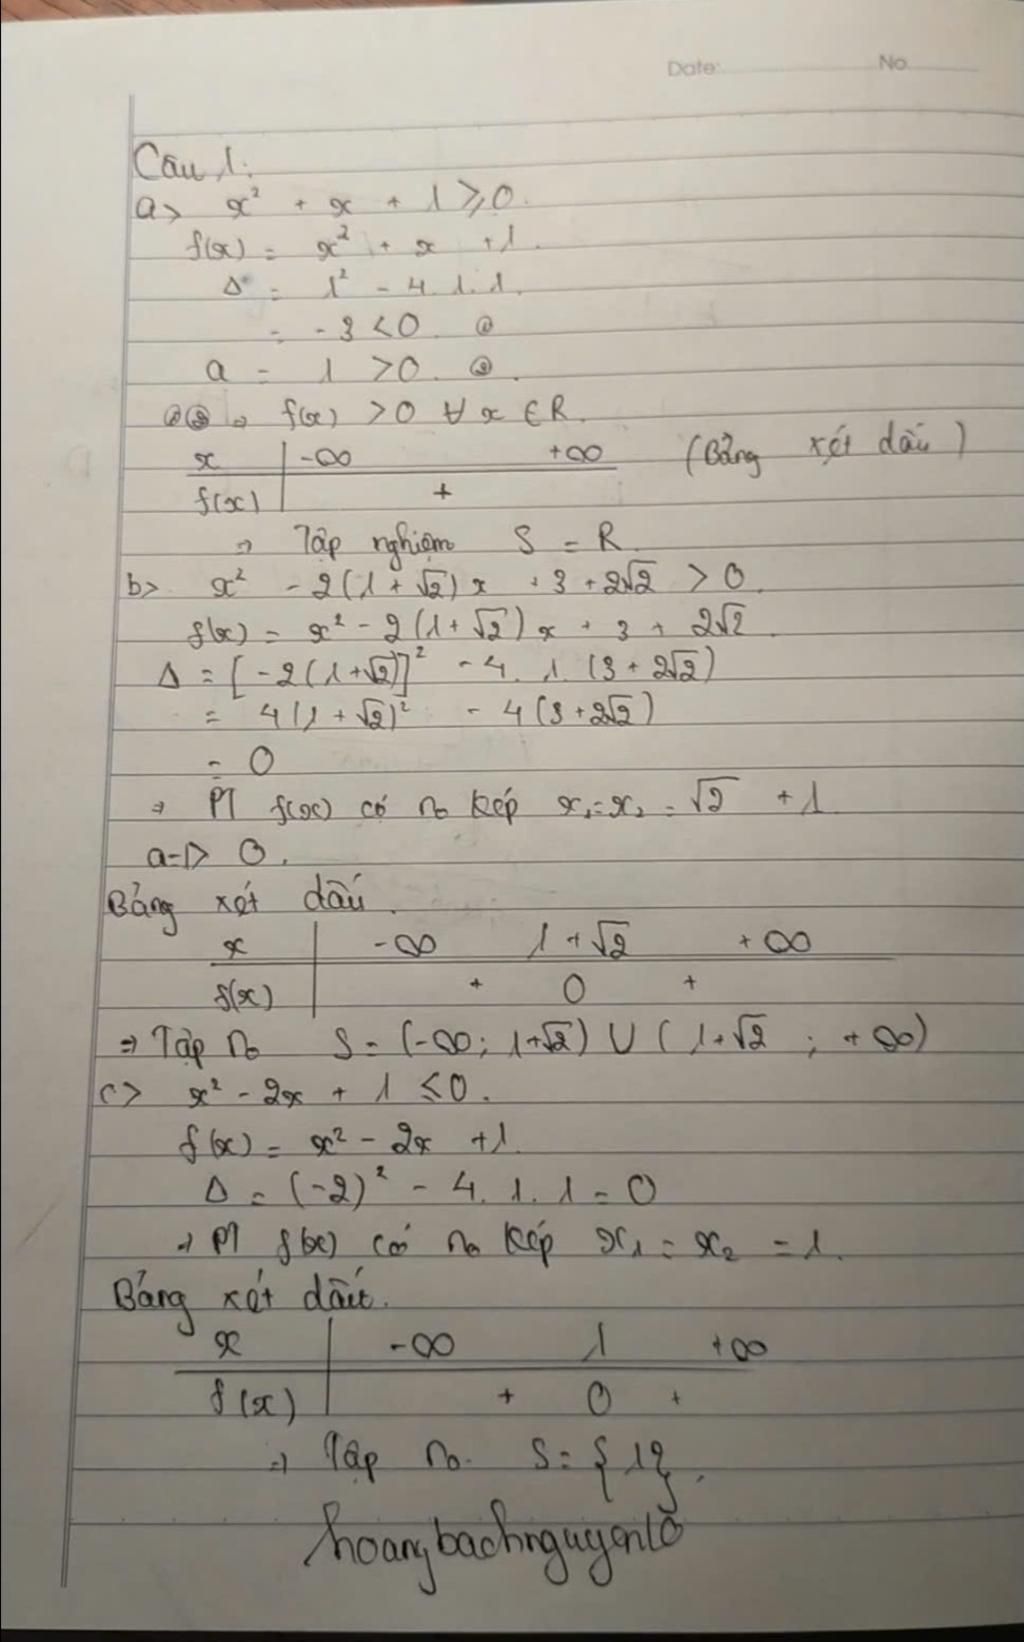 Date: No
Câu 1:
a> x² + x + 1 ⩾ 0.
f(x) = x² + x + 1.
Δ = 1² - 4.1.1.
= -3 < 0. ①
a = 1 > 0. ②.
①② ⇒ f(x) > 0 ∀ x ∈ R.
x | -∞ +∞ (Bảng xét dấu)
f(x) | +
⇒ Tập nghiệm S = R
b> x² - 2(1 + √2)x + 3 + 2√2 > 0.
f(x) = x² - 2(1 + √2)x + 3 + 2√2.
Δ = [-2(1 + √2)]² - 4. 1. (3 + 2√2)
= 4(1 + √2)² - 4(3 + 2√2)
= 0
⇒ PT f(x) có no kép x₁ = x₂ = √2 + 1
a = 1 > 0.
Bảng xét dấu.
x | -∞ 1 + √2 +∞
f(x) | + 0 +
⇒ Tập no S = (-∞; 1+√2) ∪ (1+√2 ; +∞)
c> x² - 2x + 1 ⩽ 0.
f(x) = x² - 2x + 1.
Δ = (-2)² - 4. 1. 1 = 0
⇒ PT f(x) có no kép x₁ = x₂ = 1.
Bảng xét dấu.
x | -∞ 1 +∞
f(x) | + 0 +
⇒ Tập no. S = {1}.
hoangbachnguyen10